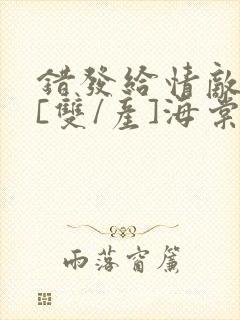 錯發給情敵
[雙/産]海棠
雨落窗簾